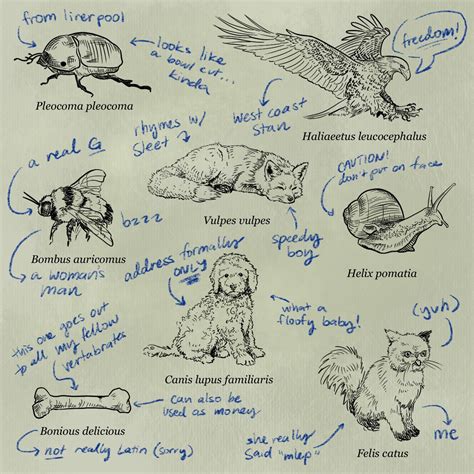 from liverpool
looks like
a bowl cut...
kinda
Pleocoma pleocoma
freedom!
west coast
stan
Haliaeetus leucocephalus
a real G
bzzz
Bombus auricomus
a woman's
man
rhymes w/
sleet
Vulpes vulpes
speedy
boy
CAUTION!
don't put on face
Helix pomatia
address formally
ONLY
what a
floofy baby!
Canis lupus familiaris
this one goes out
to all my fellow
vertabrates
can also be
used as money
Bonious delicious
not really Latin (sorry)
(yuh)
me
she really
said "mlep"
Felis catus